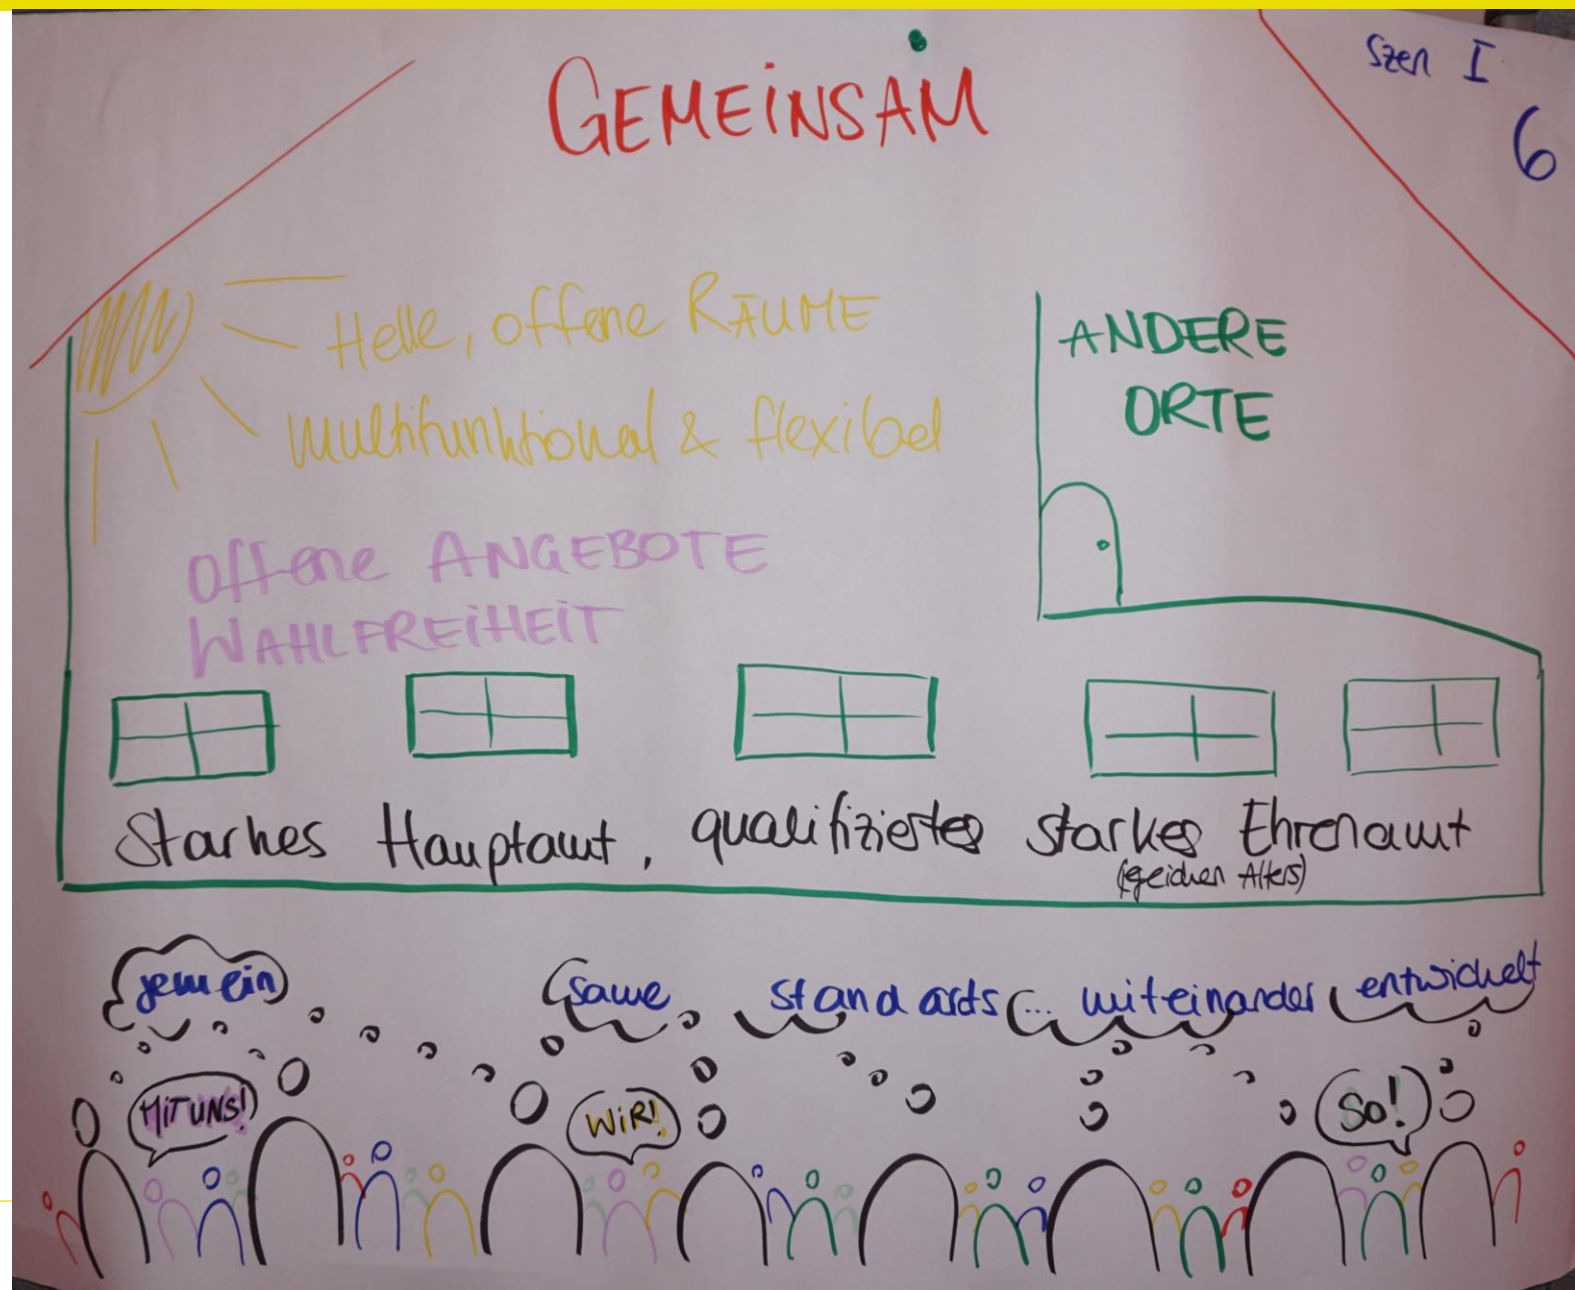 Szen I
6
GEMEINSAM
Helle, offene RÄUME
multifunktional & flexibel
ANDERE
ORTE
offene ANGEBOTE
WAHLFREIHEIT
Starkes Hauptamt, qualifiziertes starkes Ehrenamt
(geichen Alters)
gemein same standards ... miteinander entwickelt
MIT UNS!
WIR!
So!